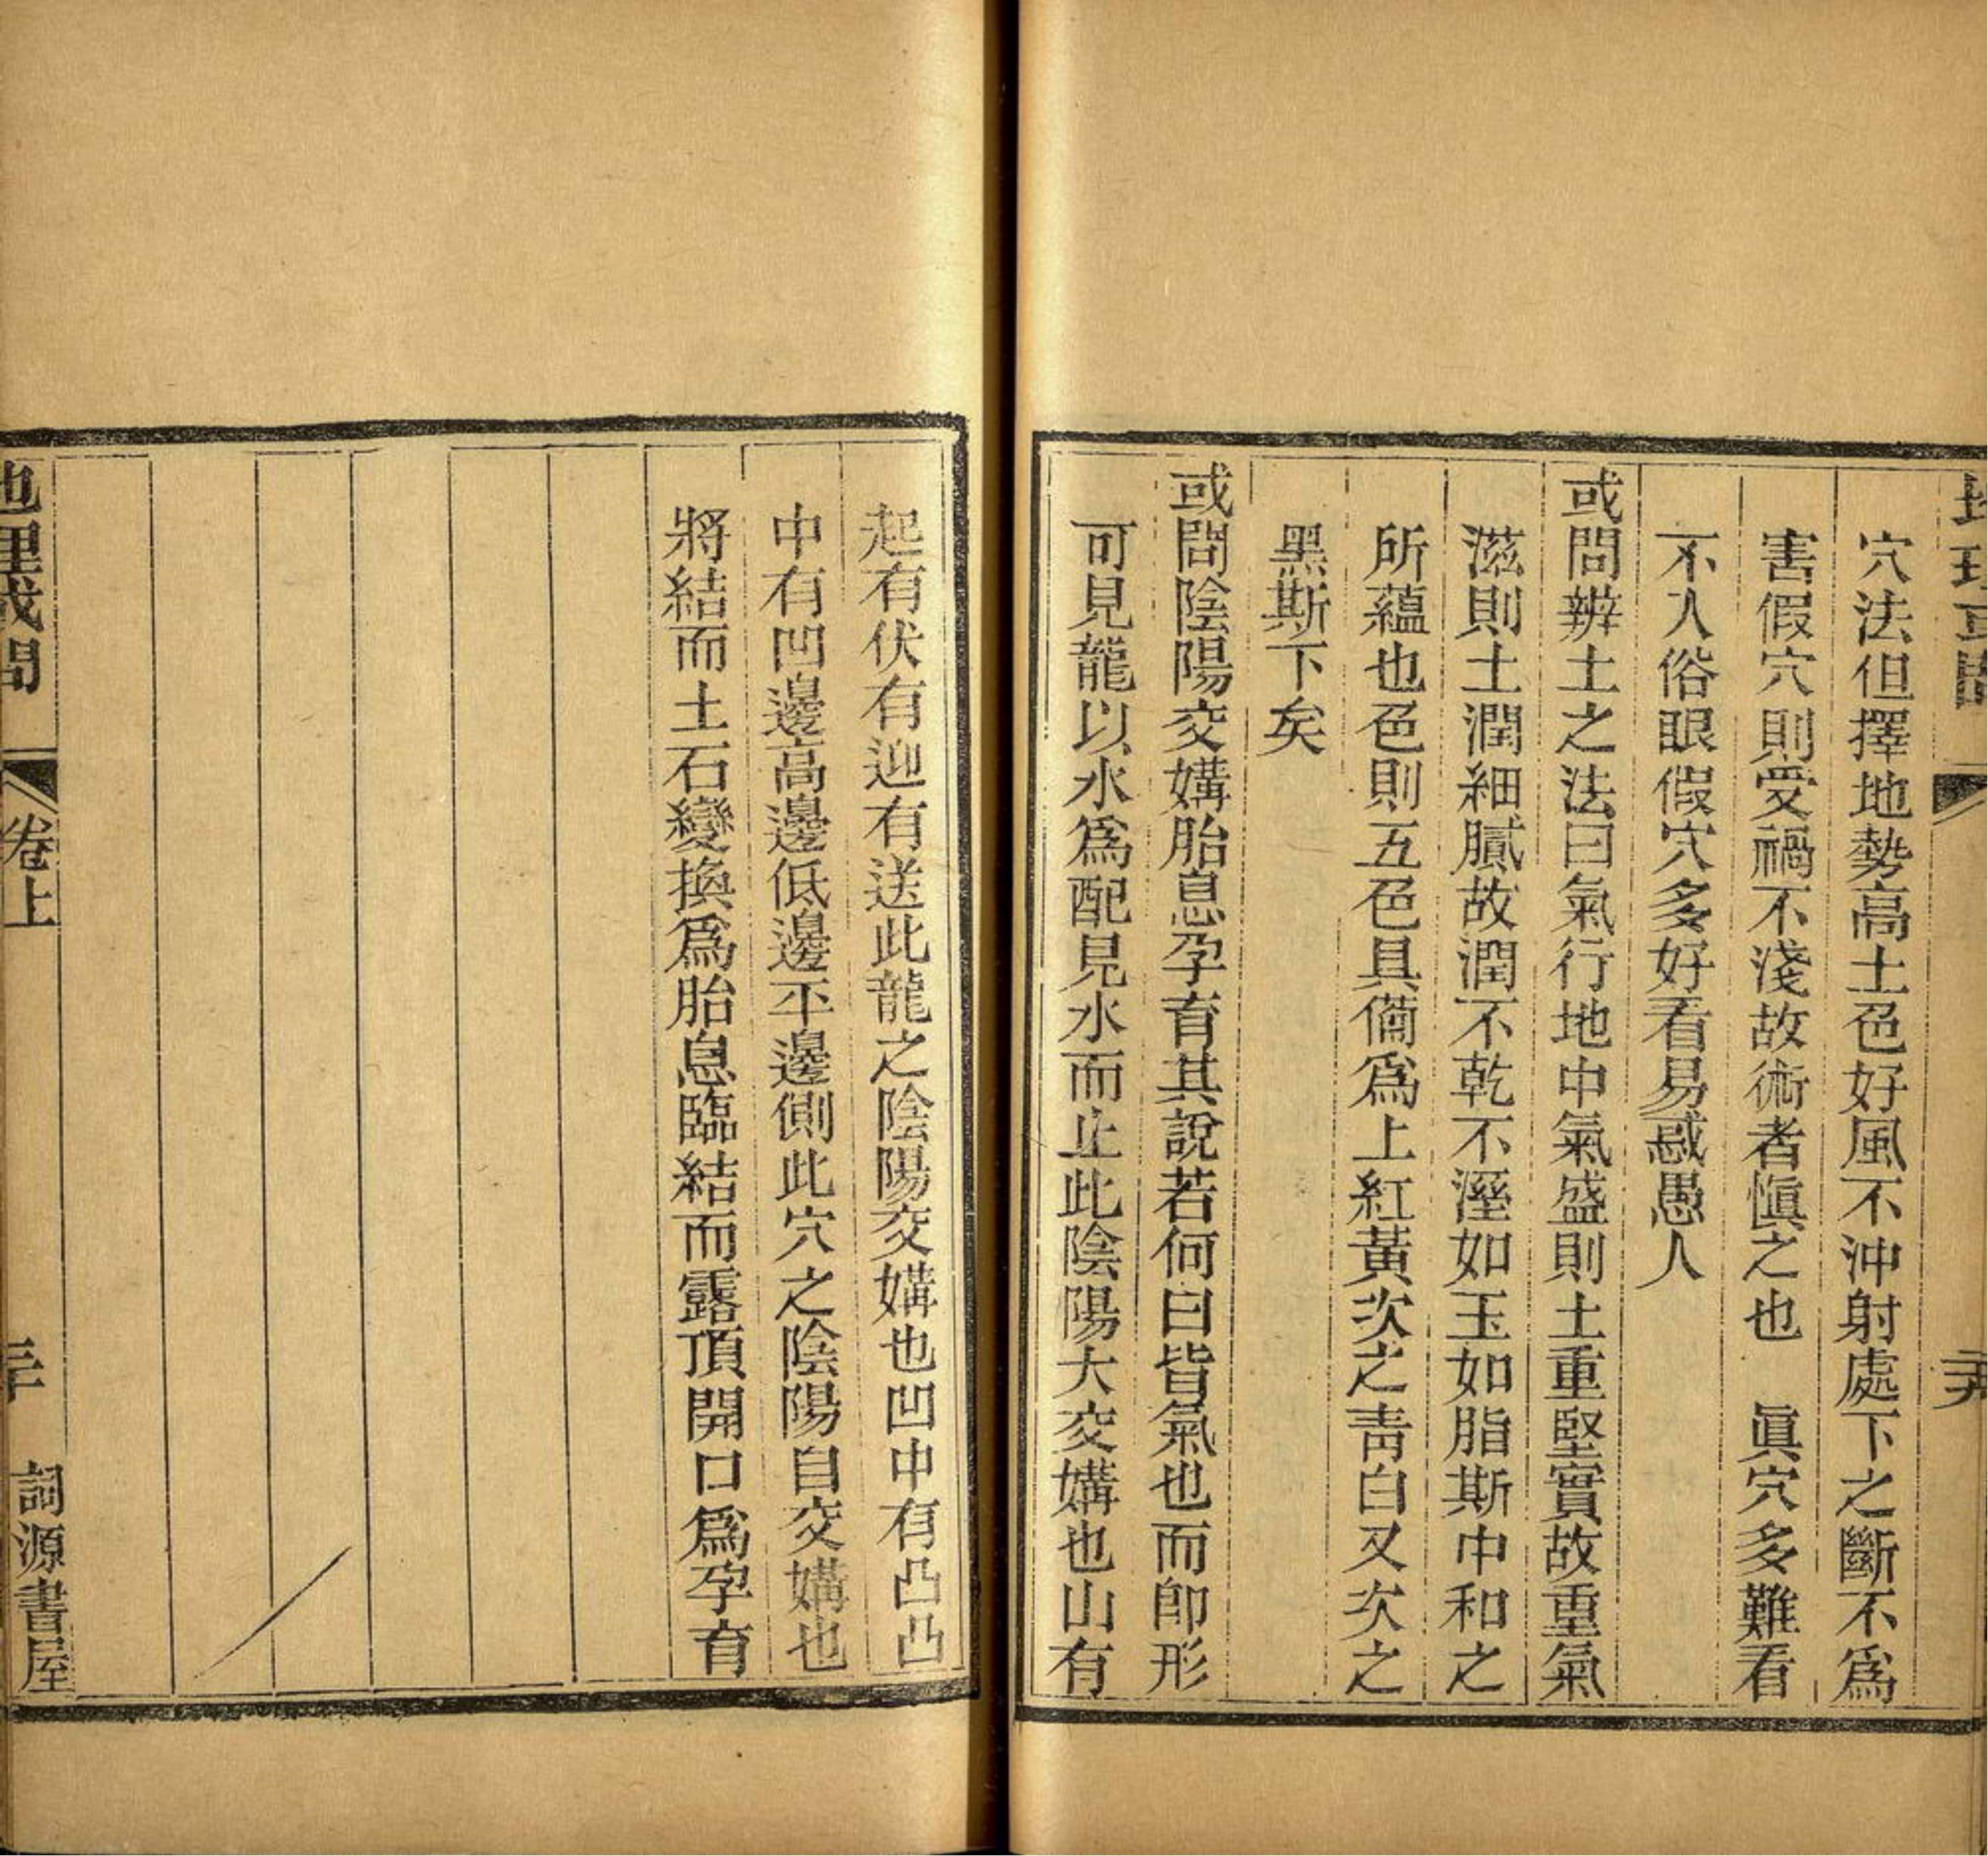 穴法但擇地勢高土色好風不沖射處下之斷不為
害假穴則受禍不淺故術者慎之也　眞穴多難看
不入俗眼假穴多好看易惑愚人
或問辨土之法曰氣行地中氣盛則土重堅實故重氣
滋則土潤細膩故潤不乾不溼如玉如脂斯中和之
所蘊也色則五色具備爲上紅黃次之靑白又次之
黑斯下矣
或問陰陽交媾胎息孕育其說若何曰皆氣也而卽形
可見龍以水爲配見水而止此陰陽大交媾也山有
起有伏有迎有送此龍之陰陽交媾也凹中有凸凸
中有凹邊高邊低邊平邊側此穴之陰陽自交媾也
將結而土石變換爲胎息臨結而露頂開口爲孕育
地理或問
卷上
三十
詞源書屋